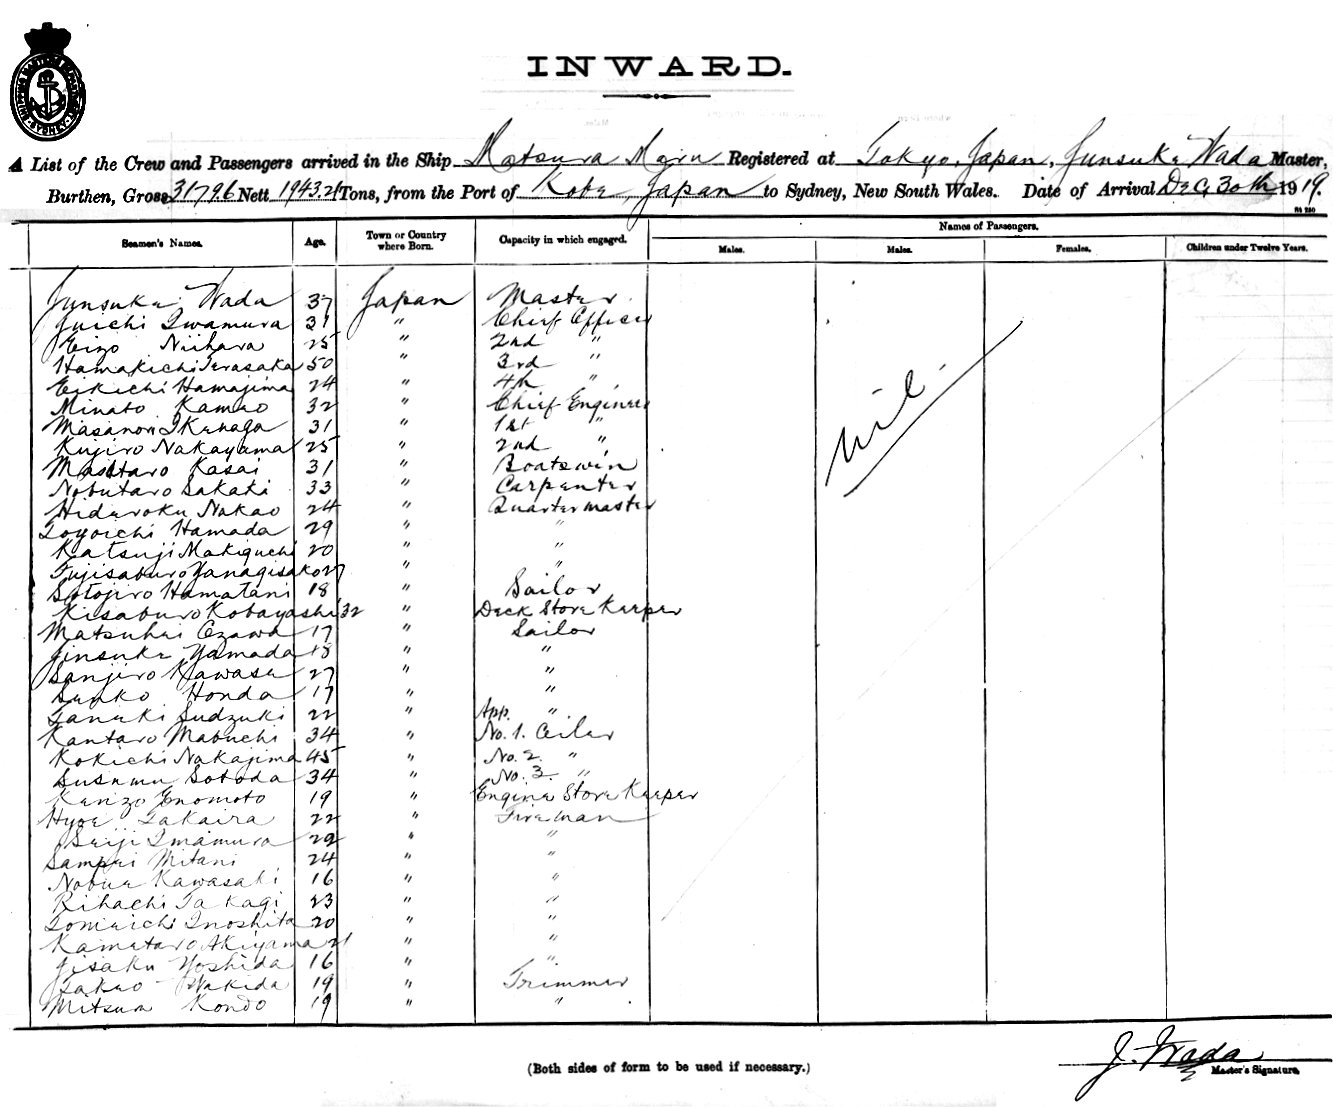 INWARD.
A List of the Crew and Passengers arrived in the Ship Matsura Maru Registered at Tokyo, Japan, Junsuke Wada Master,
Burthen, Gross 3179.6 Nett 1943.21 Tons, from the Port of Kobe, Japan to Sydney, New South Wales. Date of Arrival Dec 30th 1919.
Seamen's Names. Age. Town or Country where Born. Capacity in which engaged. Names of Passengers.
Males. Males. Females. Children under Twelve Years.
Junsuke Wada 37 Japan Master
Juichi Iwamura 31 " Chief Officer
Eizo Niihara 25 " 2nd "
Hamakichi Terasaka 50 " 3rd "
Eikichi Hamajima 24 " 4th "
Minato Kamao 32 " Chief Engineer
Masanori Ikenaga 31 " 1st "
Kujiro Nakayama 25 " 2nd "
Masataro Kasai 31 " Boatswin
Nobutaro Sakaki 33 " Carpenter
Hideroku Nakao 24 " Quartermaster
Toyoichi Hamada 29 " "
Katsuji Makiguchi 20 " "
Fujisaburo Yanagisako 27 " "
Sotojiro Hamatani 18 " Sailor
Kisaburo Kobayashi 32 " Deck Store Keeper
Matsuhei Ozawa 17 " Sailor
Jinsuke Yamada 18 " "
Sanjiro Kawase 27 " "
Senko Honda 17 " "
Tanuki Sudzuki 22 " App. "
Kantaro Mabuchi 34 " No. 1. Oiler
Kokichi Nakajima 45 " No. 2. "
Susumu Sotoda 34 " No. 3. "
Kenzo Enomoto 19 " Engine Store Keeper
Hyoe Takaira 22 " Fireman
Seiji Imamura 29 " "
Sampei Mitani 24 " "
Nobue Kawasaki 16 " "
Rihachi Takagi 23 " "
Tomeichi Inoshita 20 " "
Kametaro Akiyama 21 " "
Jisaku Yoshida 16 " "
Takao Wakida 19 " Trimmer
Mitsura Kondo 19 " "
nil.
J. Wada
Master's Signature.
(Both sides of form to be used if necessary.)